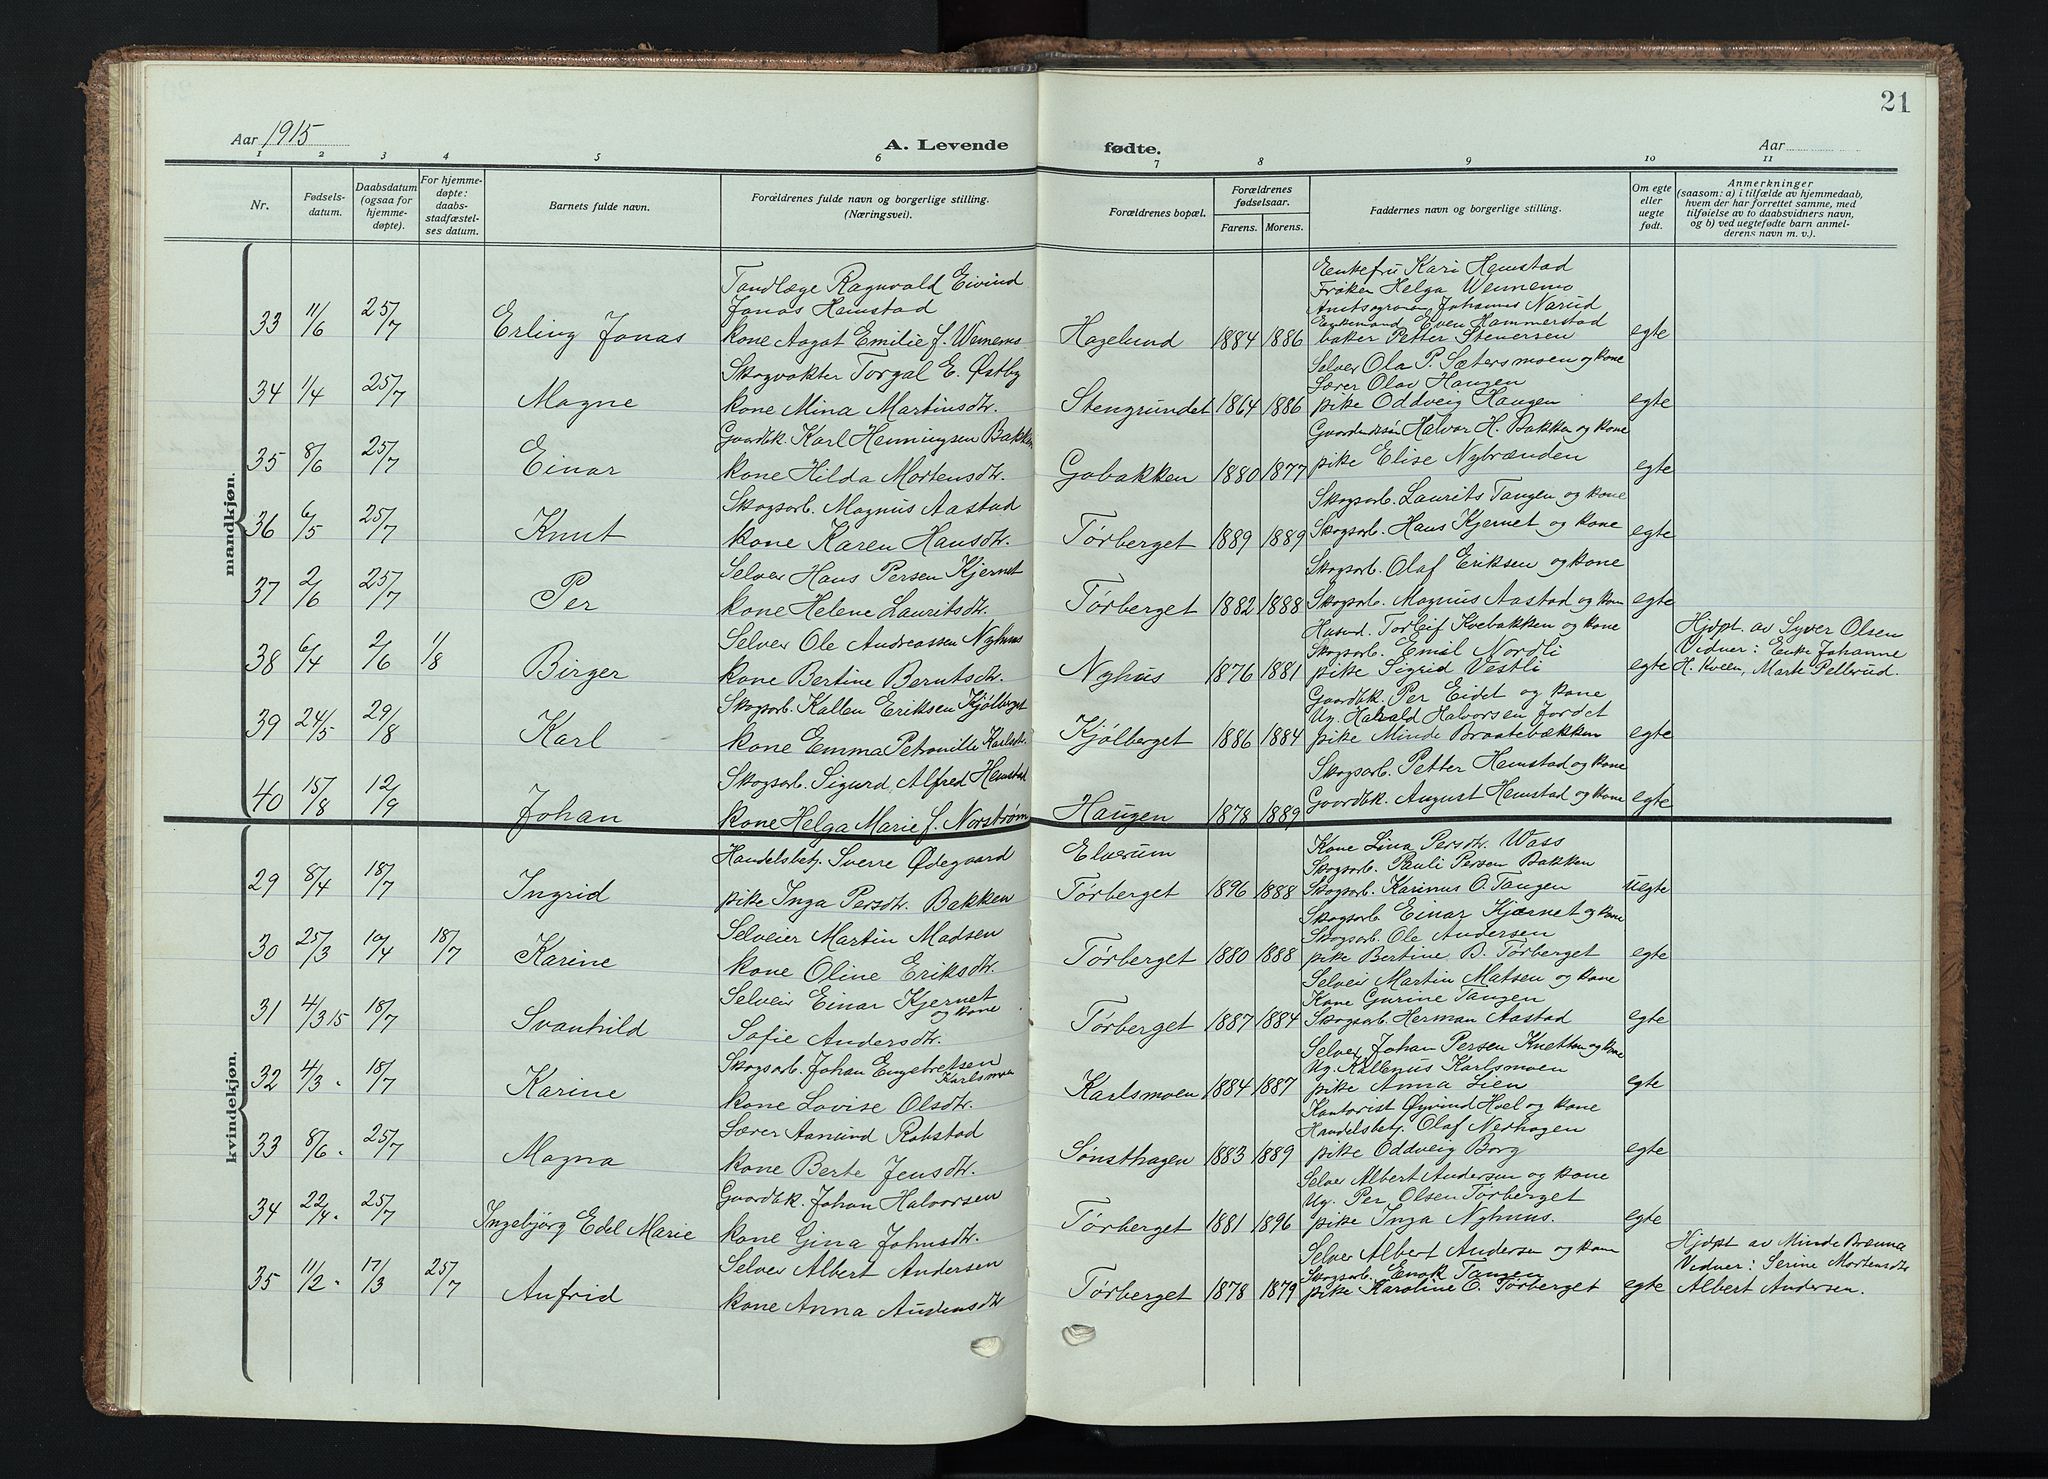 21
Aar 1915
A. Levende
fødte.
Aar
1 2 3 4 5 6 7 8 9 10 11
Nr.
Fødsels-
datum.
Daabsdatum
(ogsaa for
hjemme-
døpte).
For hjemme-
døpte:
daabs-
stadfæstel-
ses datum.
Barnets fulde navn.
Forældrenes fulde navn og borgerlige stilling.
(Næringsvei).
Forældrenes bopæl.
Forældrenes
fødselsaar.
Farens. Morens.
Faddernes navn og borgerlige stilling.
Om egte
eller
uegte
født.
Anmerkninger
(saasom: a) i tilfælde av hjemmedaab,
hvem der har forrettet samme, med
tilføielse av to daabsvidners navn,
og b) ved uegtefødte barn anmel-
derens navn m. v.).
mandkjøn.
33 11/6 25/7 Erling Jonas
Tandlæge Ragnvald Eivind
Jonas Hemstad
kone Aagat Emilie f. Wennemo
Hagelund 1884 1886
Enkefru Kari Hemstad
Frøken Helga Wennemo
Johannes Narud
Even Hammerstad
baker Petter Steversen
egte
34 11/4 25/7 Magne
Skogvokter Torgal E. Østby
kone Mina Martinsdtr.
Stengrundet 1864 1886
Selveier Ola P. Sætersmoen og kone
Lærer Olav Haugen
pike Oddveig Haugen
egte
35 8/6 25/7 Einar
Gaardbk. Karl Henningsen Bakken
kone Hilda Mortensdtr.
Gabakken 1880 1877
Halvor H. Bakken og kone
pike Elise Nybrænden
egte
36 6/5 25/7 Knut
Skogsarb. Magnus Aastad
kone Karen Hansdtr.
Tørberget 1889 1889
Skogsarb. Laurits Tangen og kone
Skogsarb. Hans Kjernet og kone
egte
37 2/6 25/7 Per
Selveier Hans Persen Kjernet
kone Helene Lauritsdtr.
Tørberget 1882 1888
Skogsarb. Olaf Eriksen og kone
Skogsarb. Magnus Aastad og kone
egte
38 6/4 2/6 1/8 Birger
Selveier Ole Andreassen Nyhus
kone Bertine Berntsdtr.
Nyhus 1876 1881
Husmd. Torleif Kvebakken og kone
Skogsarb. Emil Nordli
pike Sigrid Vestli
egte
Hjdpt. av Syver Olsen
Vidner: Enke Johanne
H. Kveen, Marte Pellerud.
39 24/5 29/8 Karl
Skogsarb. Kallen Eriksen Kjølberget
kone Emma Petronille Karlsdtr.
Kjølberget 1886 1884
Gaardbk. Per Eidet og kone
Ug. Harald Halvorsen Jordet
pike Minde Braatebækken
egte
40 15/8 12/9 Johan
Skogsarb. Sigurd Alfred Hemstad
kone Helga Marie f. Norstrøm
Haugen 1878 1889
Skogsarb. Petter Hemstad og kone
Gaardbk. August Hemstad og kone
egte
kvindekjøn.
29 8/4 18/7 Ingrid
Handelsbetj. Sverre Ødegaard
pike Inga Persdtr. Bakken
Elverum
Tørberget 1896 1888
Kone Lina Persdtr. Wass
Skogsarb. Pauli Persen Bakken
Skogsarb. Karinus O. Tangen
uegte
30 25/3 10/4 18/7 Karine
Selveier Martin Madsen
kone Oline Eriksdtr.
Tørberget 1880 1888
Skogsarb. Einar Kjærnet og kone
Skogsarb. Ole Andersen
pike Bertine B. Tørberget
egte
31 4/3 15 18/7 Svanhild
Selveier Einar Kjernet
og kone
Sofie Andersdtr.
Tørberget 1887 1884
Selveier Martin Matsen og kone
Kone Gurine Tangen
Skogsarb. Herman Aastad
egte
32 4/3 " 18/7 Karine
Skogsarb. Johan Engebretsen
Karlsmoen
kone Lovise Olsdtr.
Karlsmoen 1884 1887
Selveier Johan Persen Knetten og kone
Ug. Kallenus Karlsmoen
pike Anna Lien
egte
33 8/6 " 25/7 Magna
Lærer Aamund Robstad
kone Berte Jensdtr.
Sønsthagen 1883 1889
Kantorist Øyvind Hoel og kone
Handelsbetj. Olaf Nerhagen
pike Oddveig Borg
egte
34 22/4 " 25/7 Ingebjörg Edel Marie
Gaardbk. Johan Halvorsen
kone Gina Johnsdtr.
Tørberget 1881 1896
Selveier Albert Andersen og kone
Ug. Per Olsen Tørberget
pike Inga Nyhuus.
egte
35 11/2 " 17/3 25/7 Anfrid
Selveier Albert Andersen
kone Anna Audensdtr
Tørberget 1878 1879
Selveier Albert Andersen og kone
Skogsarb. Enok Tangen
pike Karoline O. Tørberget
egte
Hjdpt av Minde Brenna
Vidner: Serine Mortensdtr
Albert Andersen.